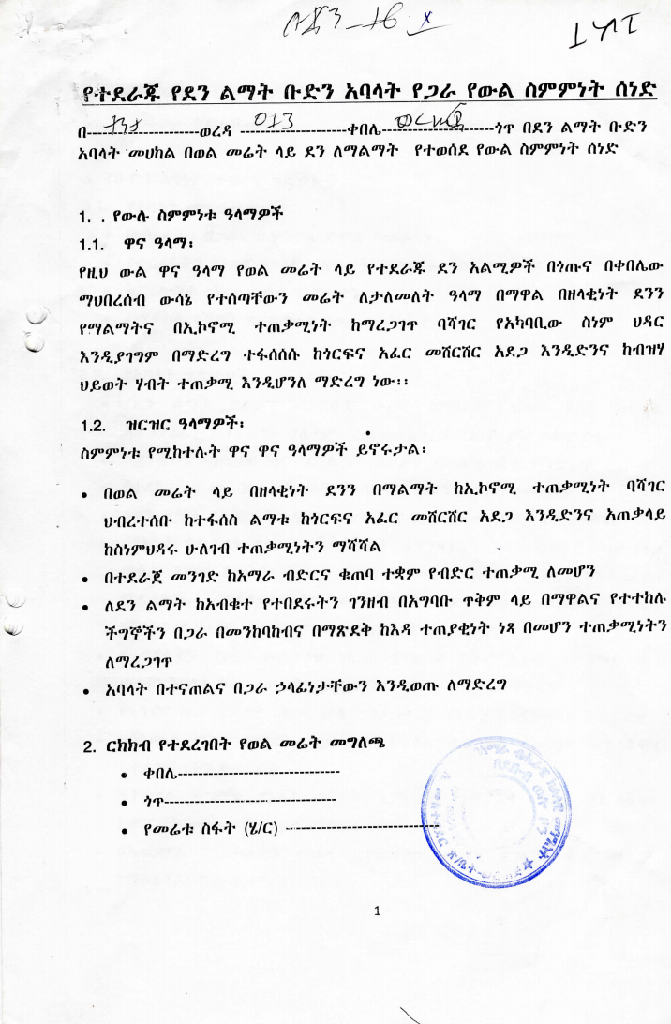 የተደራጁ የደን ልማት ቡድን አባላት የጋራ የውል ስምምነት ሰነድ
በ----------------------ወረዳ ---------------------ቀበሌ----------------------ጎጥ በደን ልማት ቡድን
አባላት መሀከል በወል መሬት ላይ ደን ለማልማት የተወሰደ የውል ስምምነት ሰነድ
1. . የውሉ ስምምነቱ ዓላማዎች
1.1. ዋና ዓላማ፡
የዚህ ውል ዋና ዓላማ የወል መሬት ላይ የተደራጁ ደን አልሚዎች በጎጡና በቀበሌው
ማህበረሰብ ውሳኔ የተሰጣቸውን መሬት ለታለመለት ዓላማ በማዋል በዘላቂነት ደንን
የማልማትና በኢኮኖሚ ተጠቃሚነት ከማረጋገጥ ባሻገር የአካባቢው ስነም ህዳር
እንዲያገግም በማድረግ ተፋሰሰሱ ከጎርፍና አፈር መሸርሸር አደጋ እንዲድንና ከብዝሃ
ህይወት ሃብት ተጠቃሚ እንዲሆንለ ማድረግ ነው፡፡
1.2. ዝርዝር ዓላማዎች፡
ስምምነቱ የሚከተሉት ዋና ዋና ዓላማዎች ይኖሩታል፡
• በወል መሬት ላይ በዘላቂነት ደንን በማልማት ከኢኮኖሚ ተጠቃሚነት ባሻገር
ህብረተሰቡ ከተፋሰስ ልማቱ ከጎርፍና አፈር መሸርሸር አደጋ እንዲድንና አጠቃላይ
ከስነምህዳሩ ሁለገብ ተጠቃሚነትን ማሻሻል
• በተደራጀ መንገድ ከአማራ ብድርና ቁጠባ ተቋም የብድር ተጠቃሚ ለመሆን
• ለደን ልማት ከአብቁተ የተበደሩትን ገንዘብ በአግባቡ ጥቅም ላይ በማዋልና የተተከሉ
ችግኞችን በጋራ በመንከባከብና በማጽደቅ ከእዳ ተጠያቂነት ነጻ በመሆን ተጠቃሚነትን
ለማረጋገጥ
• አባላት በተናጠልና በጋራ ኃላፊነታቸውን እንዲወጡ ለማድረግ
2. ርክክብ የተደረገበት የወል መሬት መግለጫ
• ቀበሌ---------------------------------
• ጎጥ-----------------------------------
• የመሬቱ ስፋት (ሄ/ር) -------------------------------
1